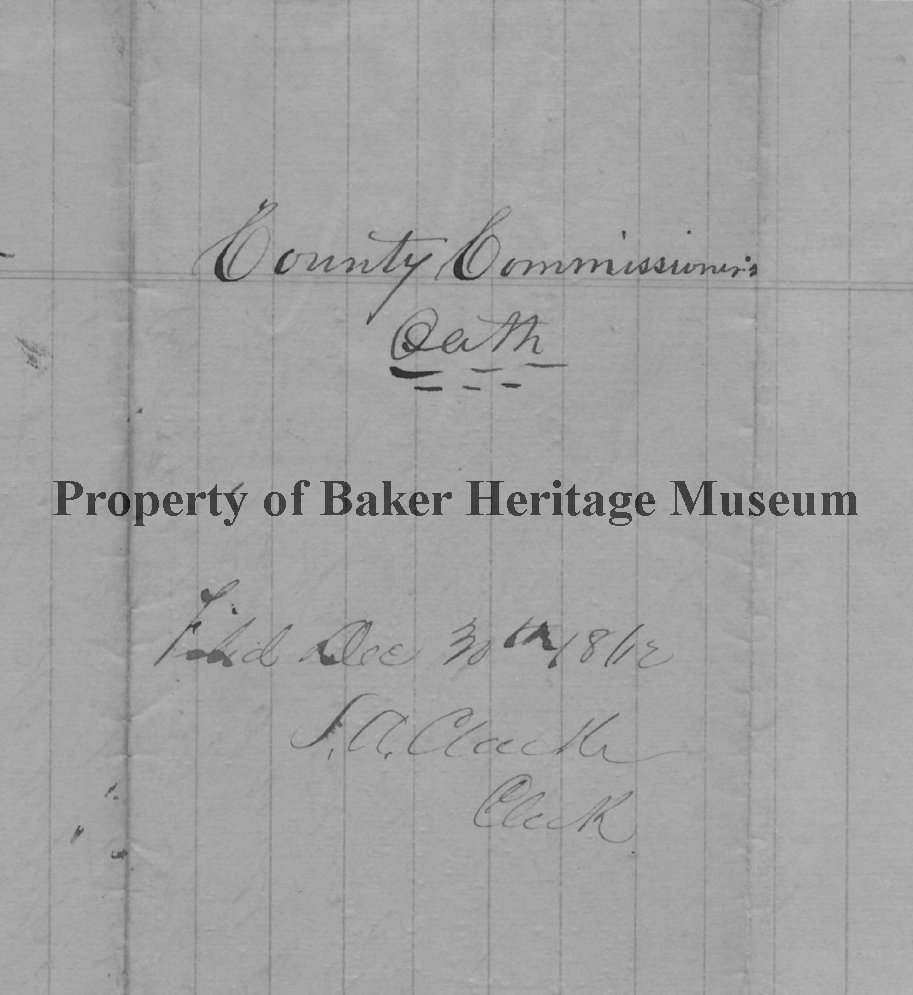 County Commissioner's
Oath
Property of Baker Heritage Museum
Filed Dec 30th 1862
S. A. Clarke
Clerk